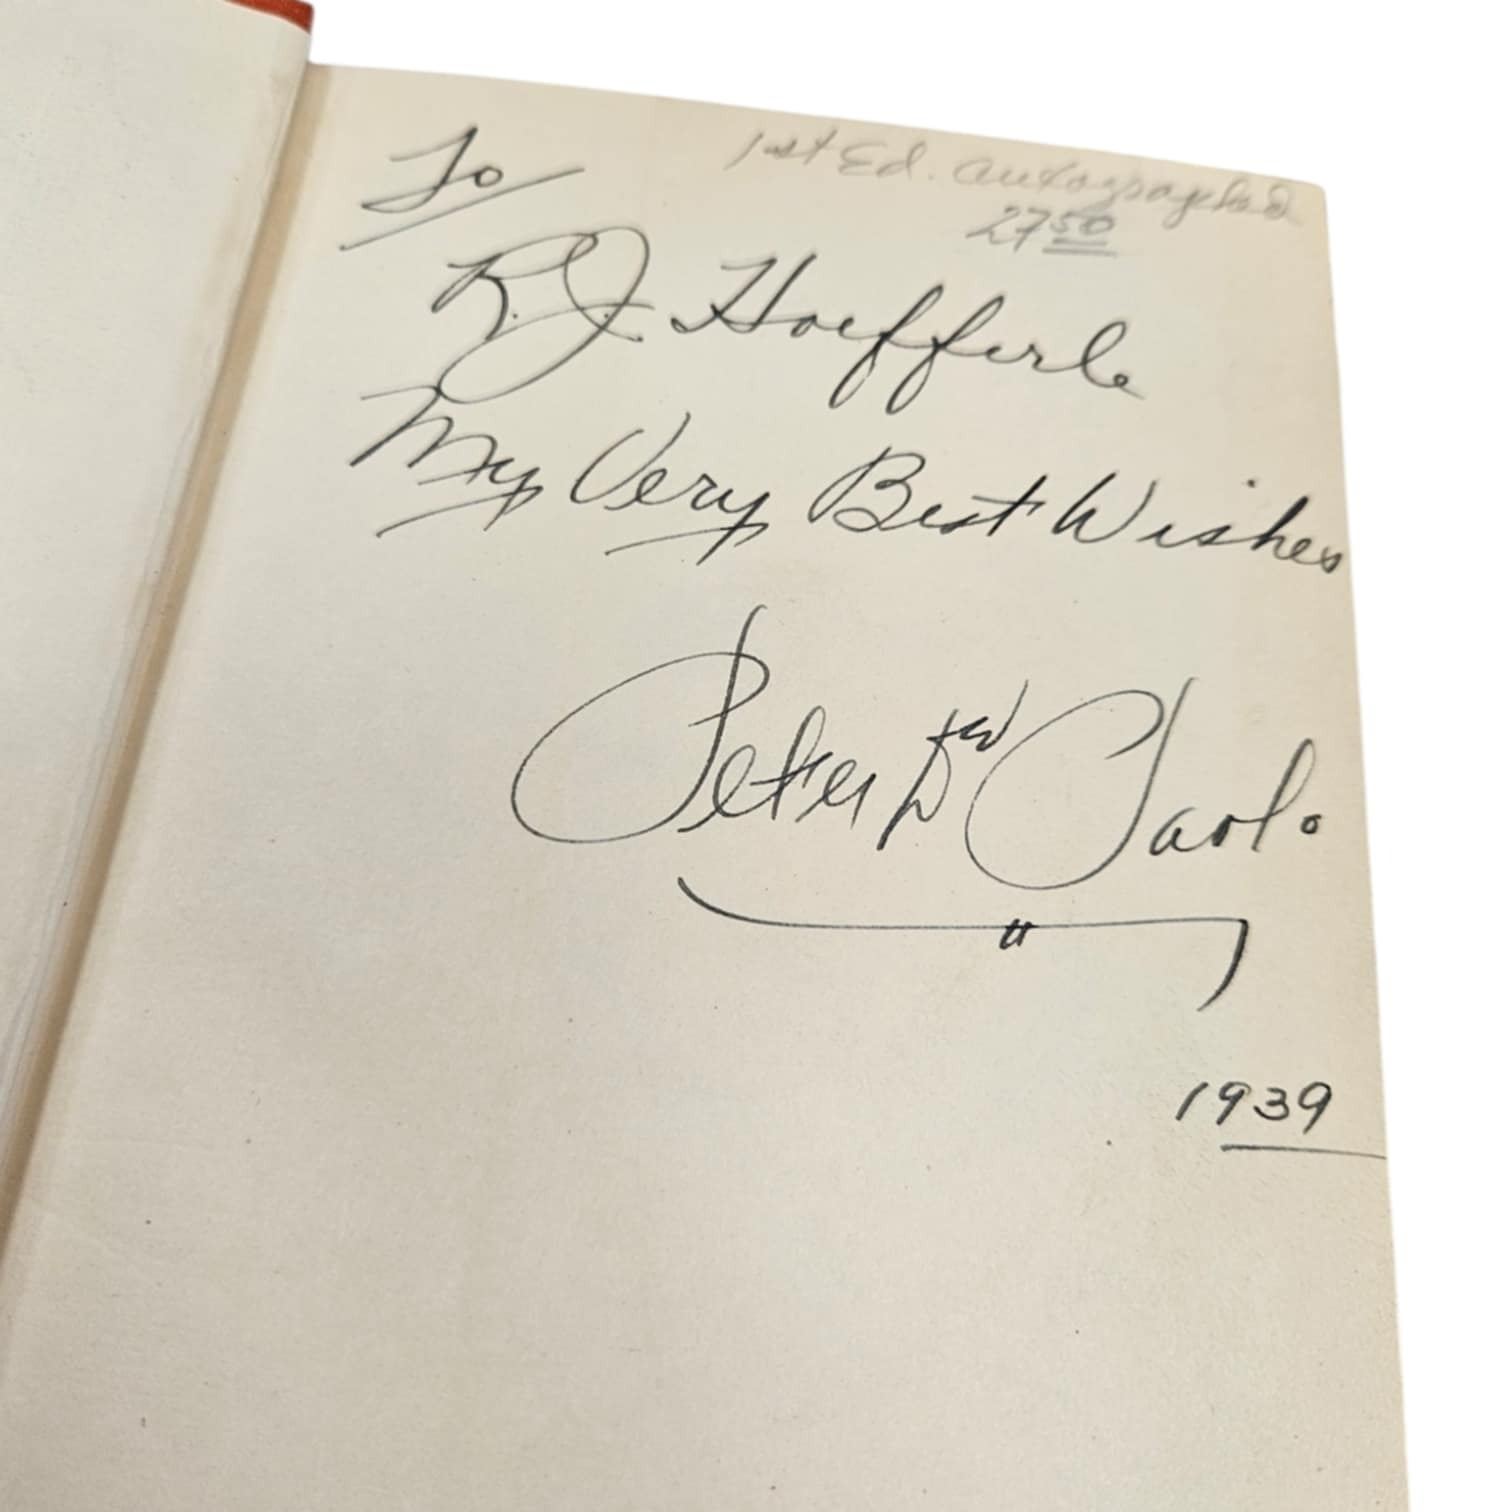 1st Ed. Autographed
27 50
To
R. J. Hoefferle
My Very Best Wishes
Peter De Paolo
1939